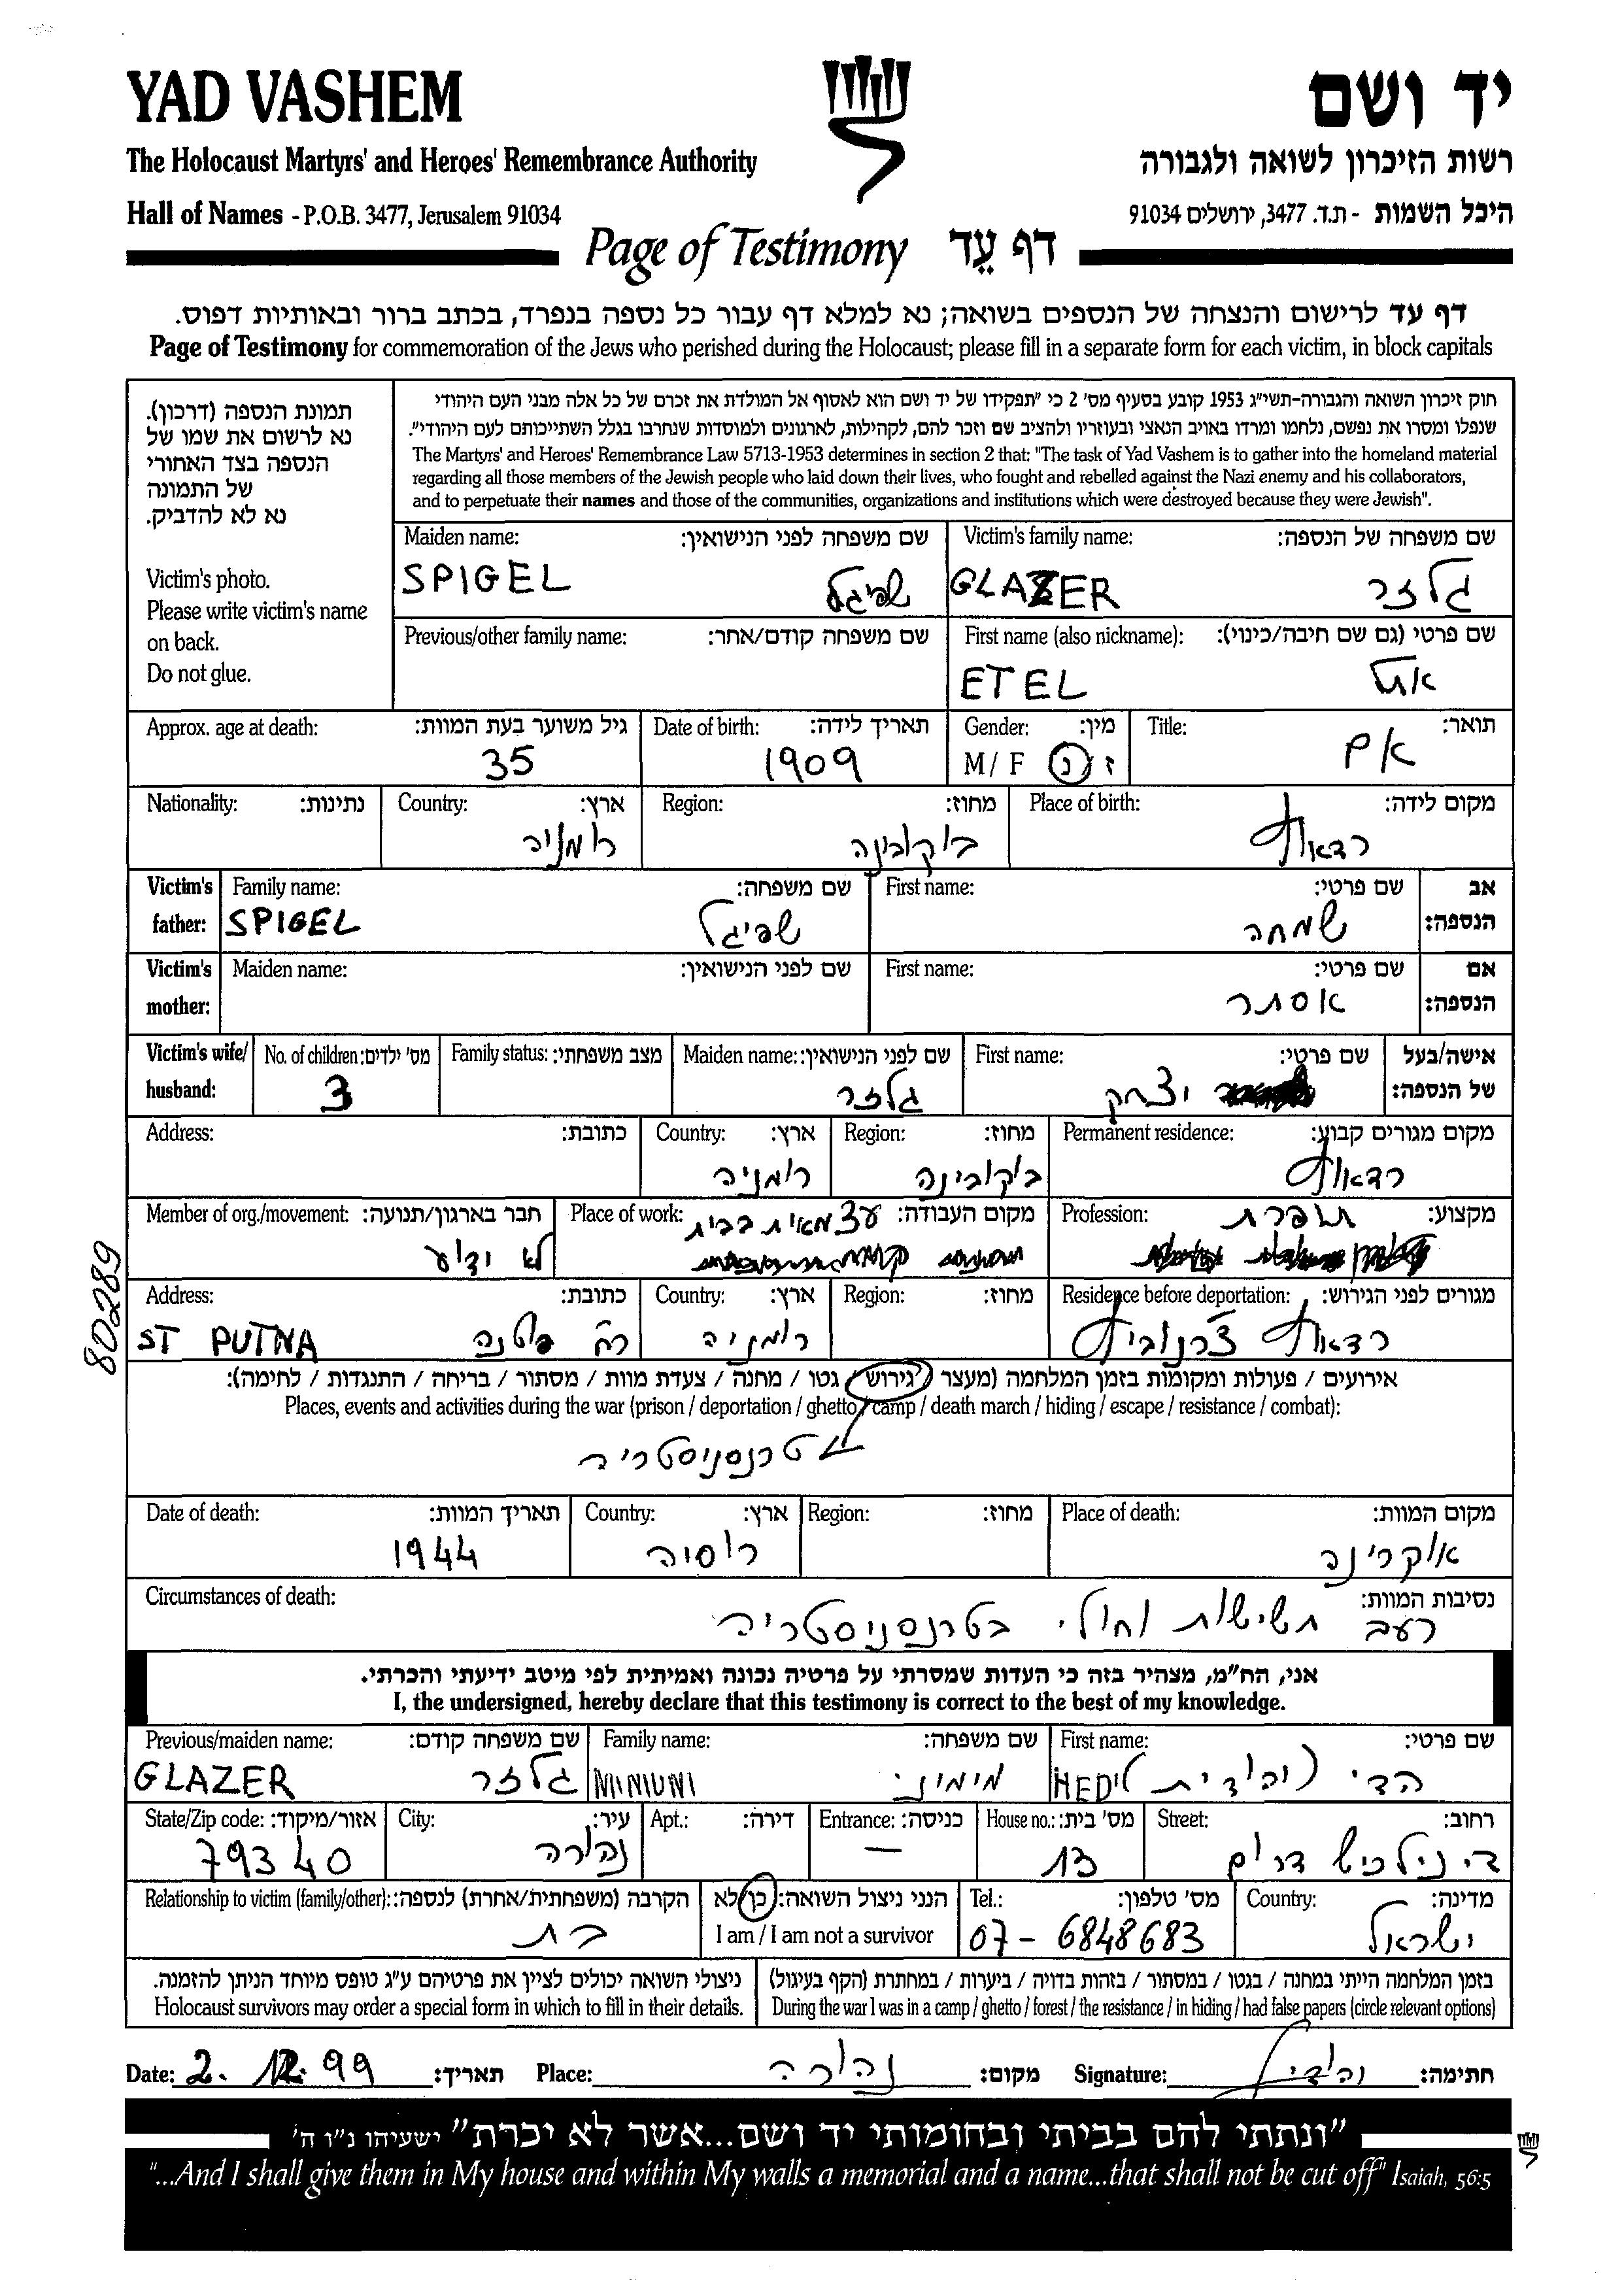 YAD VASHEM
יד ושם
The Holocaust Martyrs' and Heroes' Remembrance Authority
רשות הזיכרון לשואה ולגבורה
Hall of Names - P.O.B. 3477, Jerusalem 91034
היכל השמות - ת.ד. 3477, ירושלים 91034
Page of Testimony דף עֵד
דף עד לרישום והנצחה של הנספים בשואה; נא למלא דף עבור כל נספה בנפרד, בכתב ברור ובאותיות דפוס.
Page of Testimony for commemoration of the Jews who perished during the Holocaust; please fill in a separate form for each victim, in block capitals
תמונת הנספה (דרכון).
נא לרשום את שמו של
הנספה בצד האחורי
של התמונה
נא לא להדביק.
Victim's photo.
Please write victim's name
on back.
Do not glue.
חוק זיכרון השואה והגבורה-תשי"ג 1953 קובע בסעיף מס' 2 כי "תפקידו של יד ושם הוא לאסוף אל המולדת את זכרם של כל אלה מבני העם היהודי
שנפלו ומסרו את נפשם, נלחמו ומרדו באויב הנאצי ובעוזריו ולהציב שם וזכר להם, לקהילות, לארגונים ולמוסדות שנחרבו בגלל השתייכותם לעם היהודי".
The Martyrs' and Heroes' Remembrance Law 5713-1953 determines in section 2 that: "The task of Yad Vashem is to gather into the homeland material
regarding all those members of the Jewish people who laid down their lives, who fought and rebelled against the Nazi enemy and his collaborators,
and to perpetuate their names and those of the communities, organizations and institutions which were destroyed because they were Jewish".
Maiden name: שם משפחה לפני הנישואין: Victim's family name: שם משפחה של הנספה:
SPIGEL שפיגל GLAZER גלזר
Previous/other family name: שם משפחה קודם/אחר: First name (also nickname): שם פרטי (גם שם חיבה/כינוי):
ETEL אטל
Approx. age at death: גיל משוער בעת המוות: Date of birth: תאריך לידה: Gender: מין: Title: תואר:
35 1909 M / F ז / נ אם
Nationality: נתינות: Country: ארץ: Region: מחוז: Place of birth: מקום לידה:
רומניה בוקובינה רדאוץ
Victim's father: Family name: שם משפחה: First name: שם פרטי: אב הנספה:
SPIGEL שפיגל שמחה
Victim's mother: Maiden name: שם לפני הנישואין: First name: שם פרטי: אם הנספה:
אסתר
Victim's wife/ husband: No. of children: מס' ילדים: Family status: מצב משפחתי: Maiden name: שם לפני הנישואין: First name: שם פרטי: אישה/בעל של הנספה:
3 גלזר יצחק
Address: כתובת: Country: ארץ: Region: מחוז: Permanent residence: מקום מגורים קבוע:
רומניה בוקובינה רדאוץ
Member of org./movement: חבר בארגון/תנועה: Place of work: מקום העבודה: Profession: מקצוע:
לא ידוע עצמאית בבית תופרת
Address: כתובת: Country: ארץ: Region: מחוז: Residence before deportation: מגורים לפני הגירוש:
ST PUTNA רח פוטנה רומניה רדאוץ צ'רנוביץ
80289
אירועים / פעולות ומקומות בזמן המלחמה (מעצר / גירוש / גטו / מחנה / צעדת מוות / מסתור / בריחה / התנגדות / לחימה):
Places, events and activities during the war (prison / deportation / ghetto / camp / death march / hiding / escape / resistance / combat):
טרנסניסטריה
Date of death: תאריך המוות: Country: ארץ: Region: מחוז: Place of death: מקום המוות:
1944 רוסיה אוקרינה
Circumstances of death: נסיבות המוות:
רעב תשישות וחולי בטרנסניסטריה
אני, הח"מ, מצהיר בזה כי העדות שמסרתי על פרטיה נכונה ואמיתית לפי מיטב ידיעתי והכרתי.
I, the undersigned, hereby declare that this testimony is correct to the best of my knowledge.
Previous/maiden name: שם משפחה קודם: Family name: שם משפחה: First name: שם פרטי:
GLAZER גלזר מימוני HEDI הדי (יהודית)
State/Zip code: אזור/מיקוד: City: עיר: Apt.: דירה: Entrance: כניסה: House no.: מס' בית: Street: רחוב:
79340 נהורה — 13 דרום
Relationship to victim (family/other): הקרבה (משפחתית/אחרת) לנספה: הנני ניצול השואה: כן לא Tel.: מס' טלפון: Country: מדינה:
בת I am / I am not a survivor 07 - 6848683 ישראל
ניצולי השואה יכולים לציין את פרטיהם ע"ג טופס מיוחד הניתן להזמנה.
Holocaust survivors may order a special form in which to fill in their details.
בזמן המלחמה הייתי במחנה / בגטו / במסתור / בזהות בדויה / ביערות / במחתרת (הקף בעיגול)
During the war I was in a camp / ghetto / forest / the resistance / in hiding / had false papers (circle relevant options)
Date: 2. 12. 99 תאריך: Place: נהורה מקום: Signature: חתימה:
"ונתתי להם בביתי ובחומותי יד ושם...אשר לא יכרת" ישעיהו נ"ו ה'
"...And I shall give them in My house and within My walls a memorial and a name...that shall not be cut off" Isaiah, 56:5